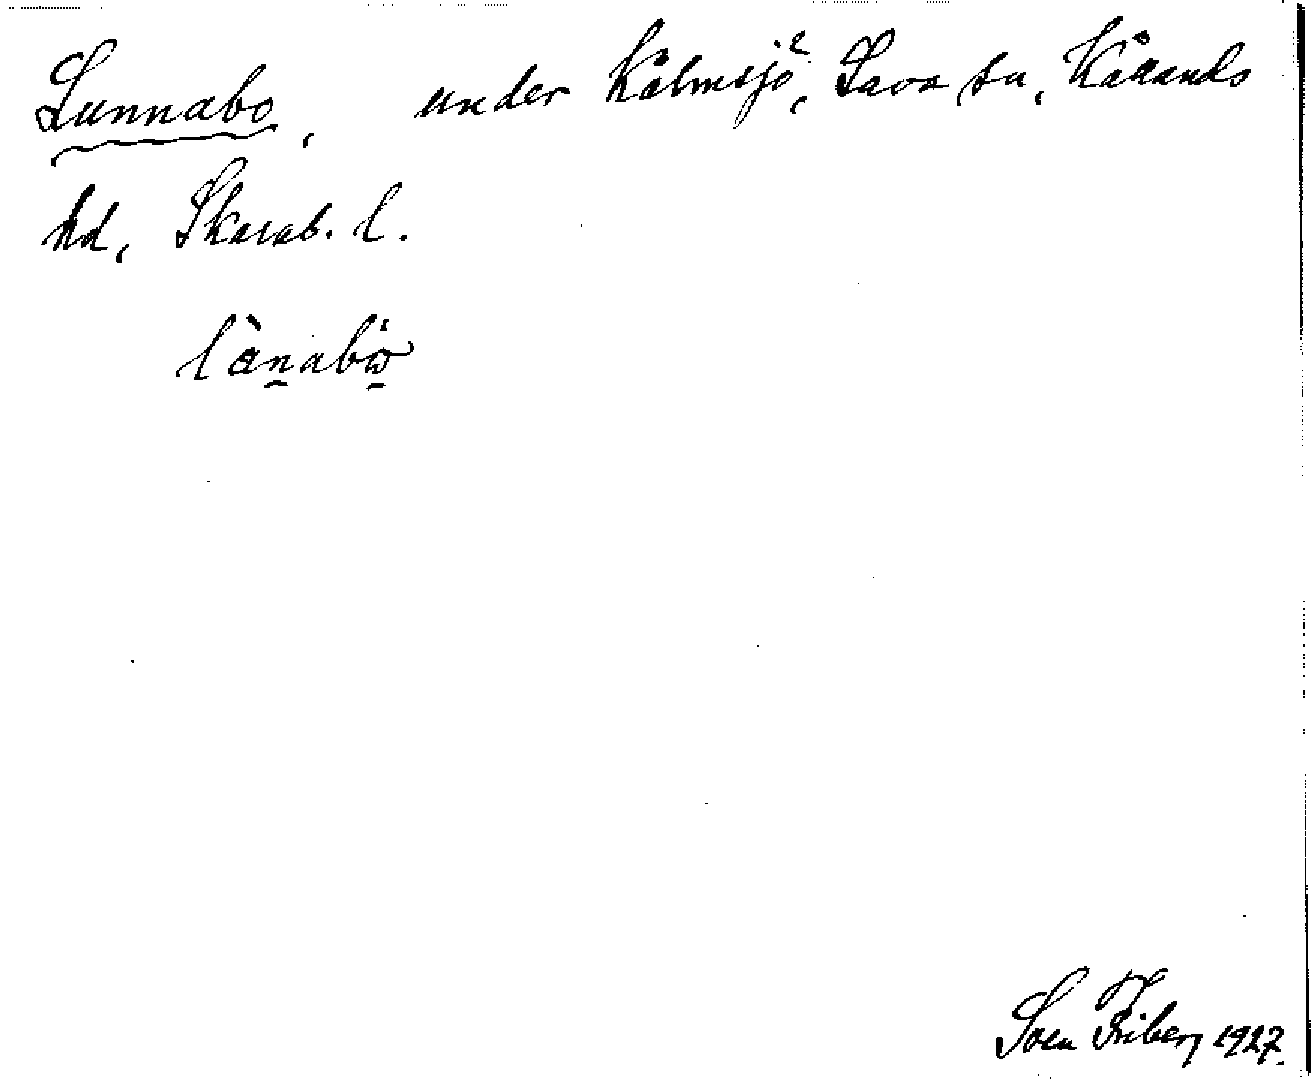 Lunnabo, under Kålmsjö², Sava sn, Kåkands
hd, Skarab. l.
lànabω̈
Sven Friberg 1927.